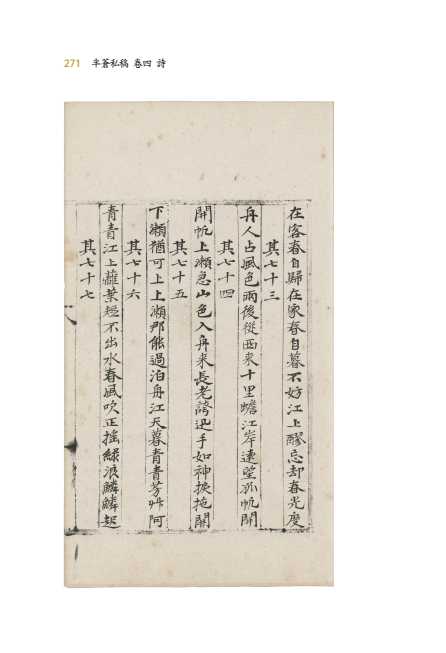 271 半蒼私稿 卷四 詩
在客春自歸在家春自暮不妨江上醪忘却春光度
其七十三
舟人占風色雨後從西來十里蟾江岸遠望孤帆開
其七十四
開帆上瀨急山色入舟來長老誇迅手如神捩拖關
其七十五
下瀨猶可上上瀨那能過泊舟江天暮青青芳艸阿
其七十六
青青江上蘿葉短不出水春風吹正搖綠浪鱗鱗起
其七十七